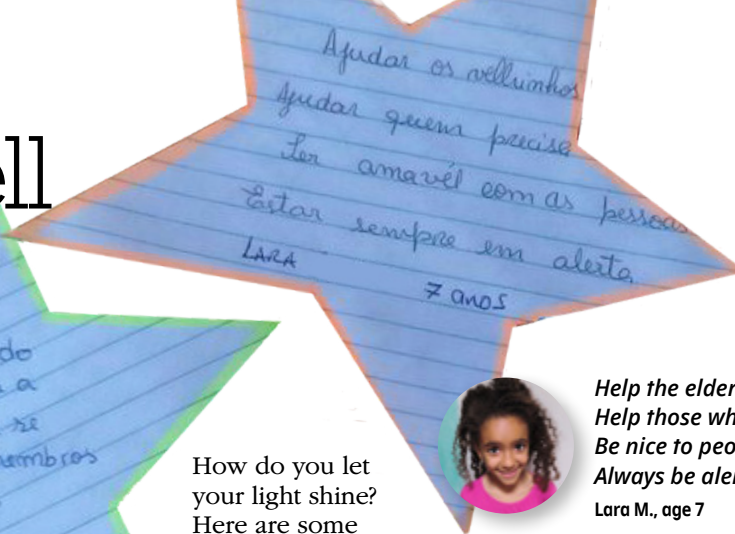 ell
Ajudar os velhinhos
Ajudar quem precisa
Ser amavél com as pessoas
Estar sempre em alerta
LARA 7 anos
do
a
se
membros
How do you let
your light shine?
Here are some
Help the elder
Help those wh
Be nice to peo
Always be aler
Lara M., age 7